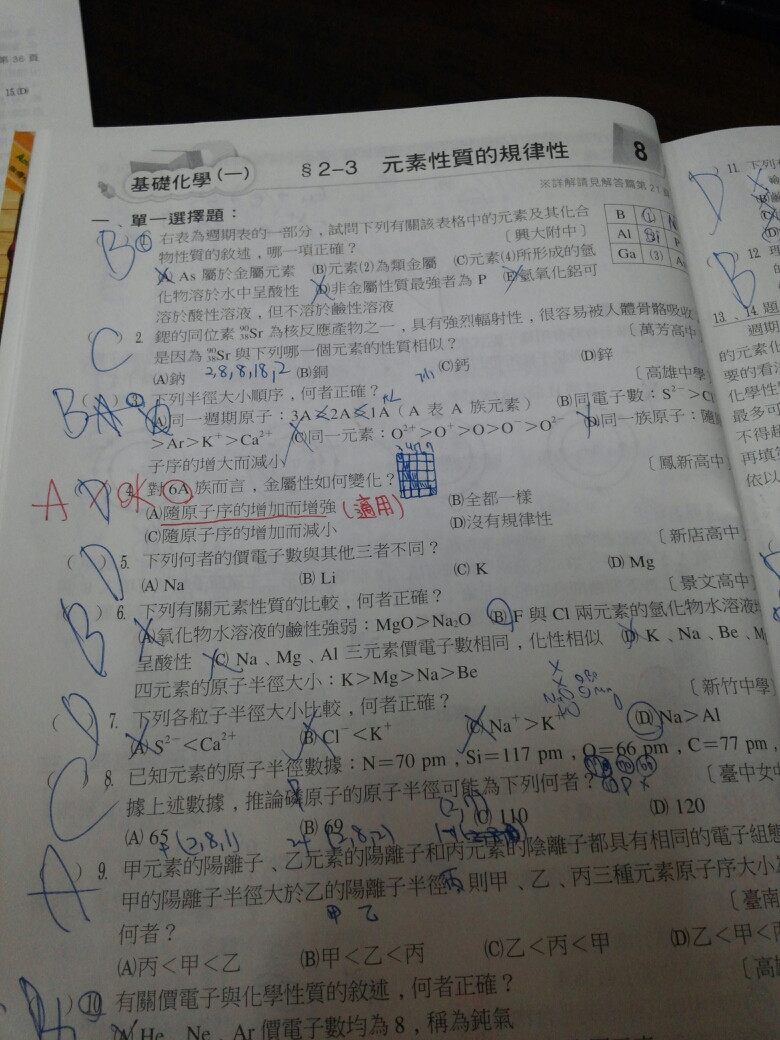 第 36 頁
基礎化學(一)
§2-3 元素性質的規律性
8
※詳解請見解答篇第 21
一、單一選擇題：
B 1. 右表為週期表的一部分，試問下列有關該表格中的元素及其化合
物性質的敘述，哪一項正確？ 〔興大附中〕
(A) As 屬於金屬元素 (B)元素⑵為類金屬 (C)元素⑷所形成的氫
化物溶於水中呈酸性 (D)非金屬性質最強者為 P (E)氫氧化鋁可
溶於酸性溶液，但不溶於鹼性溶液
B (1) N
Al Si P
Ga (3) As
C 2. 鍶的同位素 ⁹⁰₃₈Sr 為核反應產物之一，具有強烈輻射性，很容易被人體骨骼吸收
是因為 ⁹⁰₃₈Sr 與下列哪一個元素的性質相似？ 〔萬芳高中
2,8,8,18,2
(A)鈉 (B)銅 (C)鈣 (D)鋅
B 3. 下列半徑大小順序，何者正確？ 〔高雄中學
(A)同一週期原子：3A＞2A＞1A（A 表 A 族元素） (B)同電子數：S²⁻＞Cl
＞Ar＞K⁺＞Ca²⁺ (C)同一元素：O²⁺＞O⁺＞O＞O⁻＞O²⁻ (D)同一族原子：隨
子序的增大而減小 〔鳳新高中
A 4. 對 6A 族而言，金屬性如何變化？
(A)隨原子序的增加而增強 (適用) (B)全都一樣
(C)隨原子序的增加而減小 (D)沒有規律性
〔新店高中
D 5. 下列何者的價電子數與其他三者不同？
(A) Na (B) Li (C) K (D) Mg
〔景文高中
B 6. 下列有關元素性質的比較，何者正確？
(A)氧化物水溶液的鹼性強弱：MgO＞Na₂O (B) F 與 Cl 兩元素的氫化物水溶液
呈酸性 (C) Na、Mg、Al 三元素價電子數相同，化性相似 (D) K、Na、Be、M
四元素的原子半徑大小：K＞Mg＞Na＞Be
〔新竹中學
D 7. 下列各粒子半徑大小比較，何者正確？
(A) S²⁻＜Ca²⁺ (B) Cl⁻＜K⁺ (C) Na⁺＞K⁺ (D) Na＞Al
C 8. 已知元素的原子半徑數據：N=70 pm，Si=117 pm，O=66 pm，C=77 pm，
據上述數據，推論磷原子的原子半徑可能為下列何者？ 〔臺中女中
(A) 65 (B) 69 (C) 110 (D) 120
A 9. 甲元素的陽離子、乙元素的陽離子和丙元素的陰離子都具有相同的電子組態
甲的陽離子半徑大於乙的陽離子半徑，則甲、乙、丙三種元素原子序大小
甲 乙
何者？ 〔臺南
(A)丙＜甲＜乙 (B)甲＜乙＜丙 (C)乙＜丙＜甲 (D)乙＜甲＜丙
〔高雄
10. 有關價電子與化學性質的敘述，何者正確？
(A) He、Ne、Ar 價電子數均為 8，稱為鈍氣
D 11. 下列
B 12. 理
13.、14. 題
週期
的元素化
要的看法
化學性
最多可
不得超
再填
依以